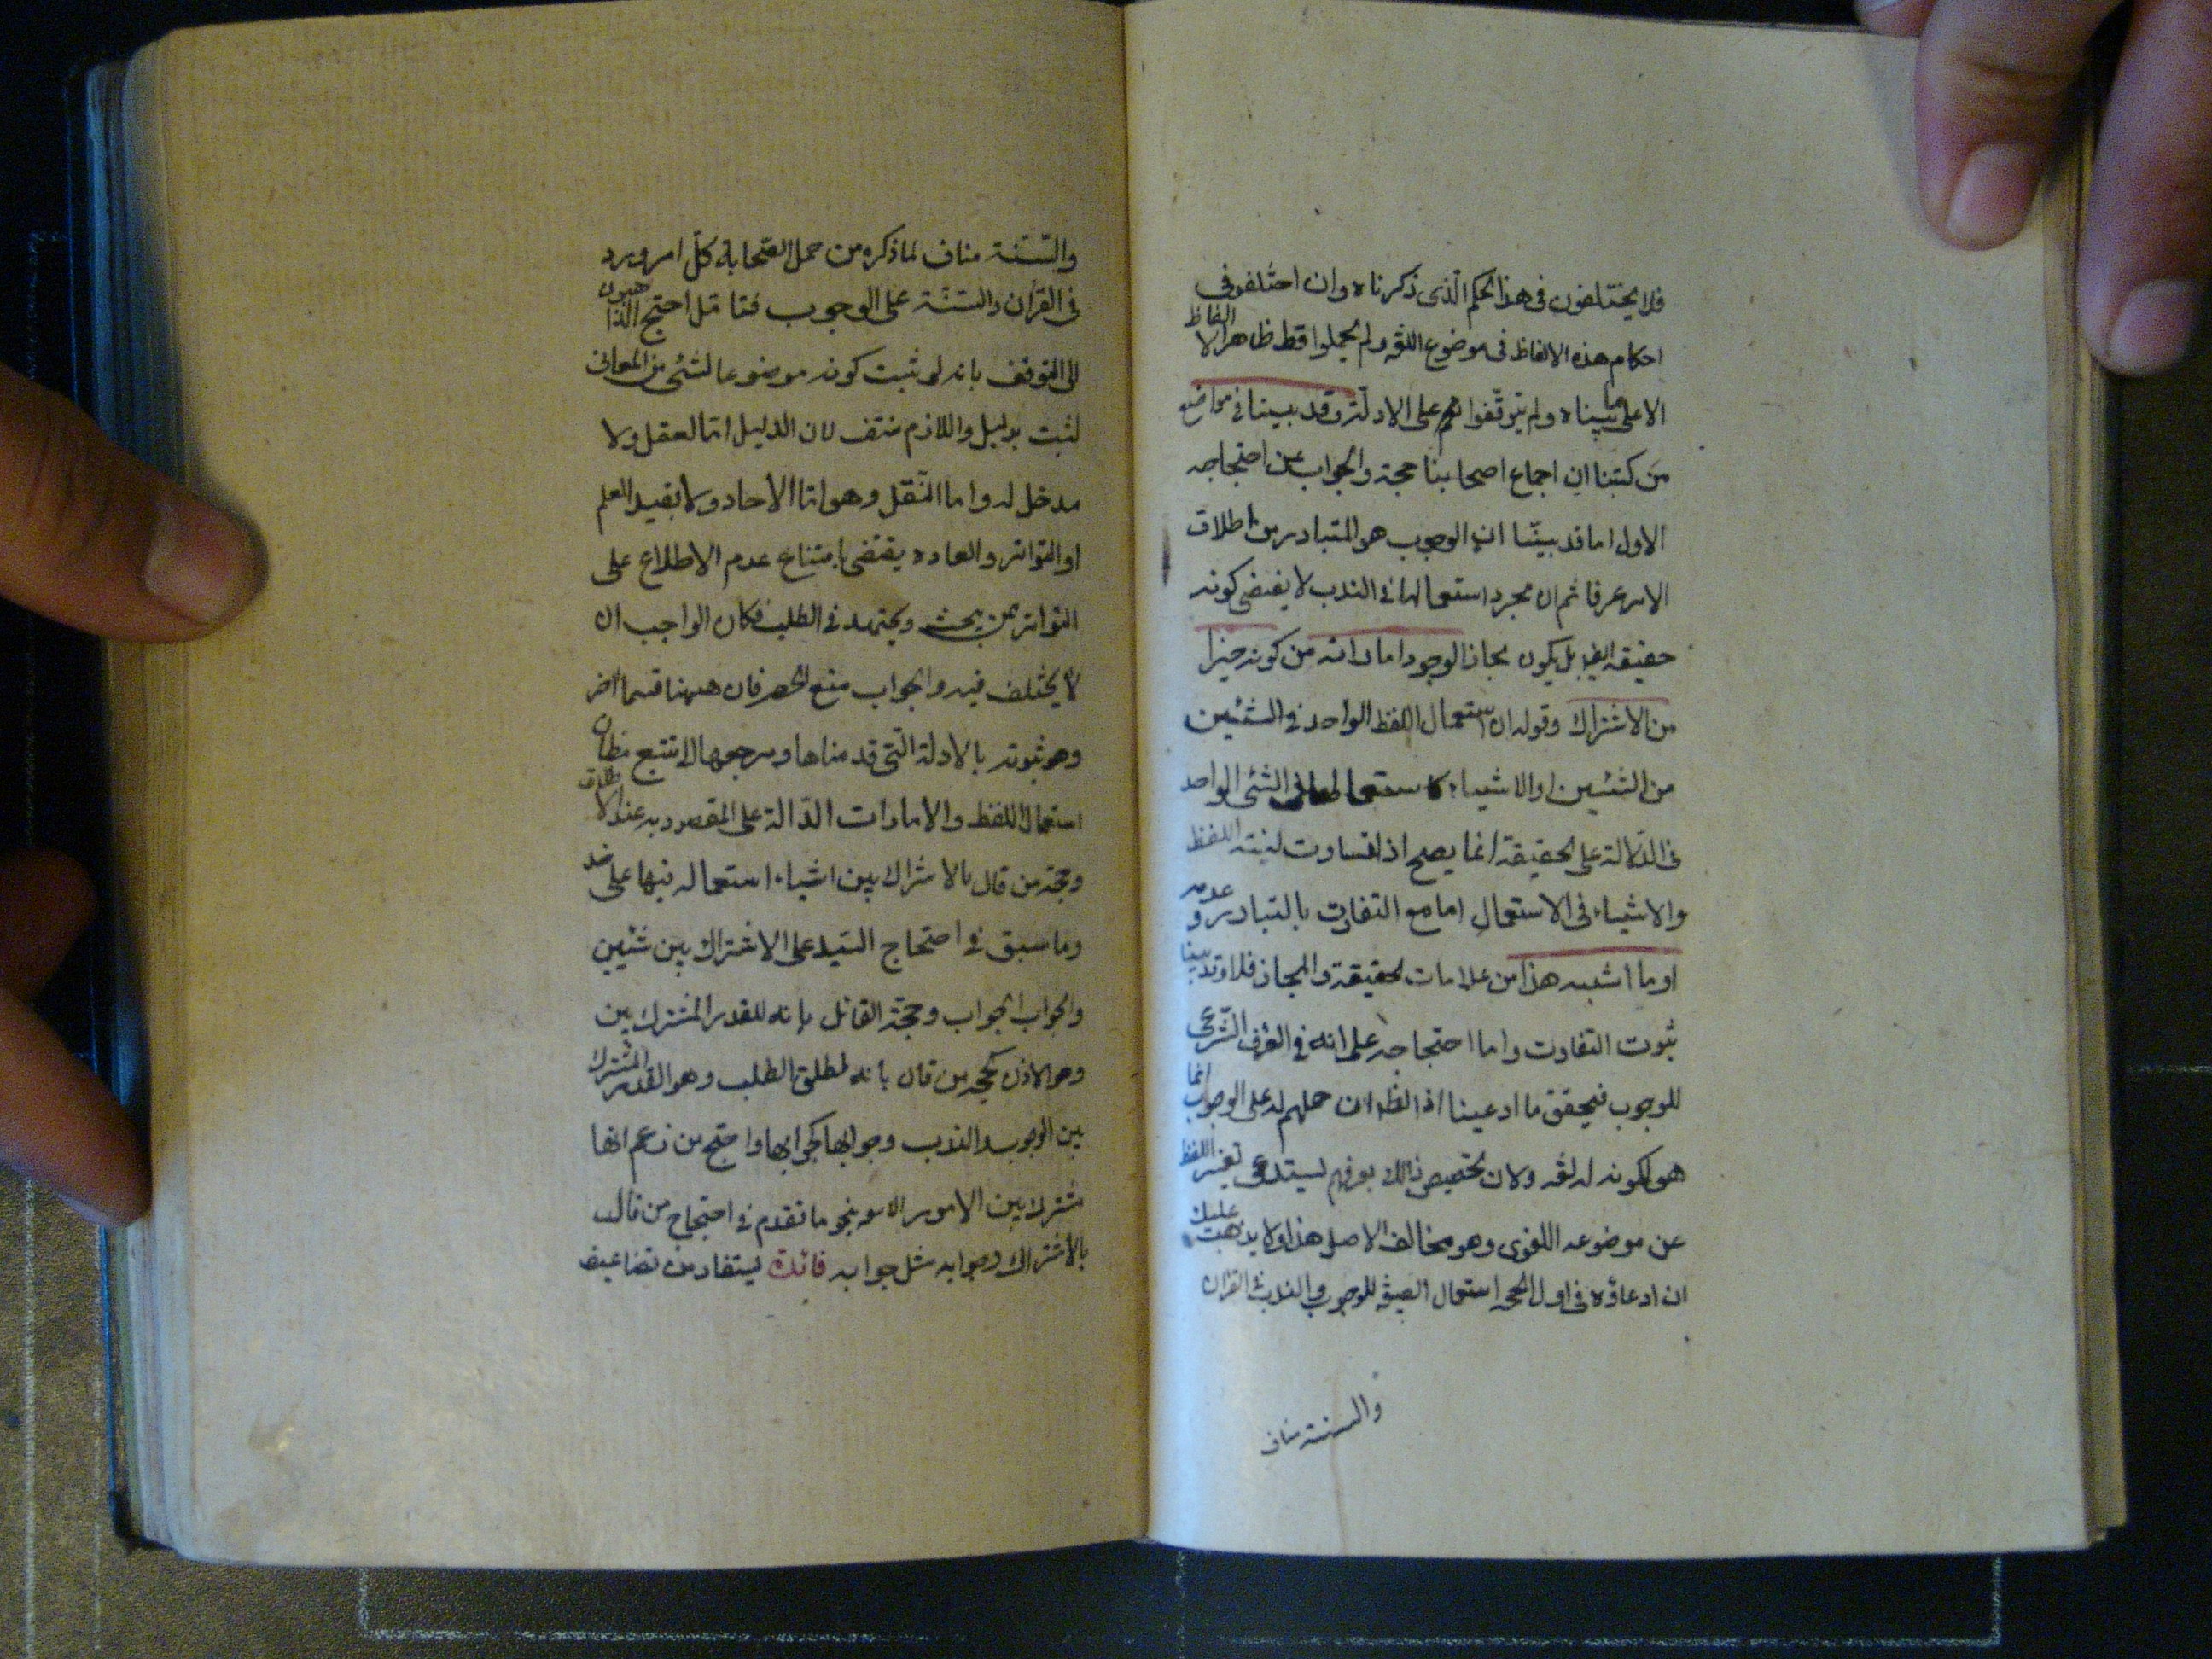 فلا يختلفون في هذا الحكم الّذى ذكرناه وان اختلفوا في
احكام هذه الالفاظ في موضوع اللغه ولم يحملوا قط ظاهر الالفاظ
الا على ما بيناه ولم يتوقّفوا على الادلة وقد بينا في مواضع
من كتبنا ان اجماع اصحابنا حجة والجواب عن احتجاجه
الاول اما قد بيّنا ان الوجوب هو المتبادر من اطلاق
الامر عرفا ثم ان مجرد استعمالها في الندب لا يقتضى كونه
حقيقه ايضا بل يكون مجازا لوجود اماراته من كونه خيرا
من الاشتراك وقوله ان استعمال اللفظ الواحد في الشيئين
من الشيئين او الاشياء كاستعمالها في الشئ الواحد
في الدّلالة على الحقيقة انما يصح اذا تساوت نسبة اللفظ
والاشياء في الاستعمال اما مع التفاوت بالتبادر وعدمه
او ما اشبه هذا من علامات الحقيقة والمجاز فلا وقد بينا
ثبوت التفاوت واما احتجاجه على انه في العرف الشّرعى
للوجوب فيحقق ما ادعينا اذ الظ ان حملهم له على الوجوب انما
هو لكونه له لغه ولان تخصيص ذلك بعرفهم يستدعى تغيير اللفظ
عن موضوعه اللغوى وهو مخالف الاصل هذا ولا يذهب عليك
ان ادعاؤه في اول الحجه استعمال الصيغه للوجوب والندب في القران
والسنة مناف
والسّنة مناف لما ذكره من حمل الصّحابة كلّ امر ورد
في القران والسنّة على الوجوب فتامّل احتج الذاهبون
الى التوقف بانه لو ثبت كونه موضوعا لشئ من المعانى
لثبت بدليل واللازم منتف لان الدليل اما العقل ولا
مدخل له واما النّقل وهو اما الاحاد ولا يفيد العلم
او التواتر والعاده يقتضى بامتناع عدم الاطلاع على
التواتر ممن يبحث ويجتهد في الطلب فكان الواجب ان
لا يختلف فيه والجواب منع الحصر فان ههنا قسما اخر
وهو ثبوته بالادلة الّتى قدمناها ومرجعها الى تتبع مظان
استعمال اللفظ والامارات الدّالة على المقصود به عند الاطلاق
وحجة من قال بالاشتراك بين اشياء استعماله فيها على حد
وما سبق في احتجاج السّيد على الاشتراك بين شيئين
والجواب الجواب وحجّة القائل بانه للقدر المشترك بين
وهو الاذن كحجة من قال بانه لمطلق الطلب وهو القدر المشترك
بين الوجوب والندب وجوابها كجوابها واحتج من زعم انها
مشترك بين الامور الا بنحو ما تقدم في احتجاج من قال
بالاشتراك وجوابه مثل جوابه فائدة يستفاد من تضاعيف